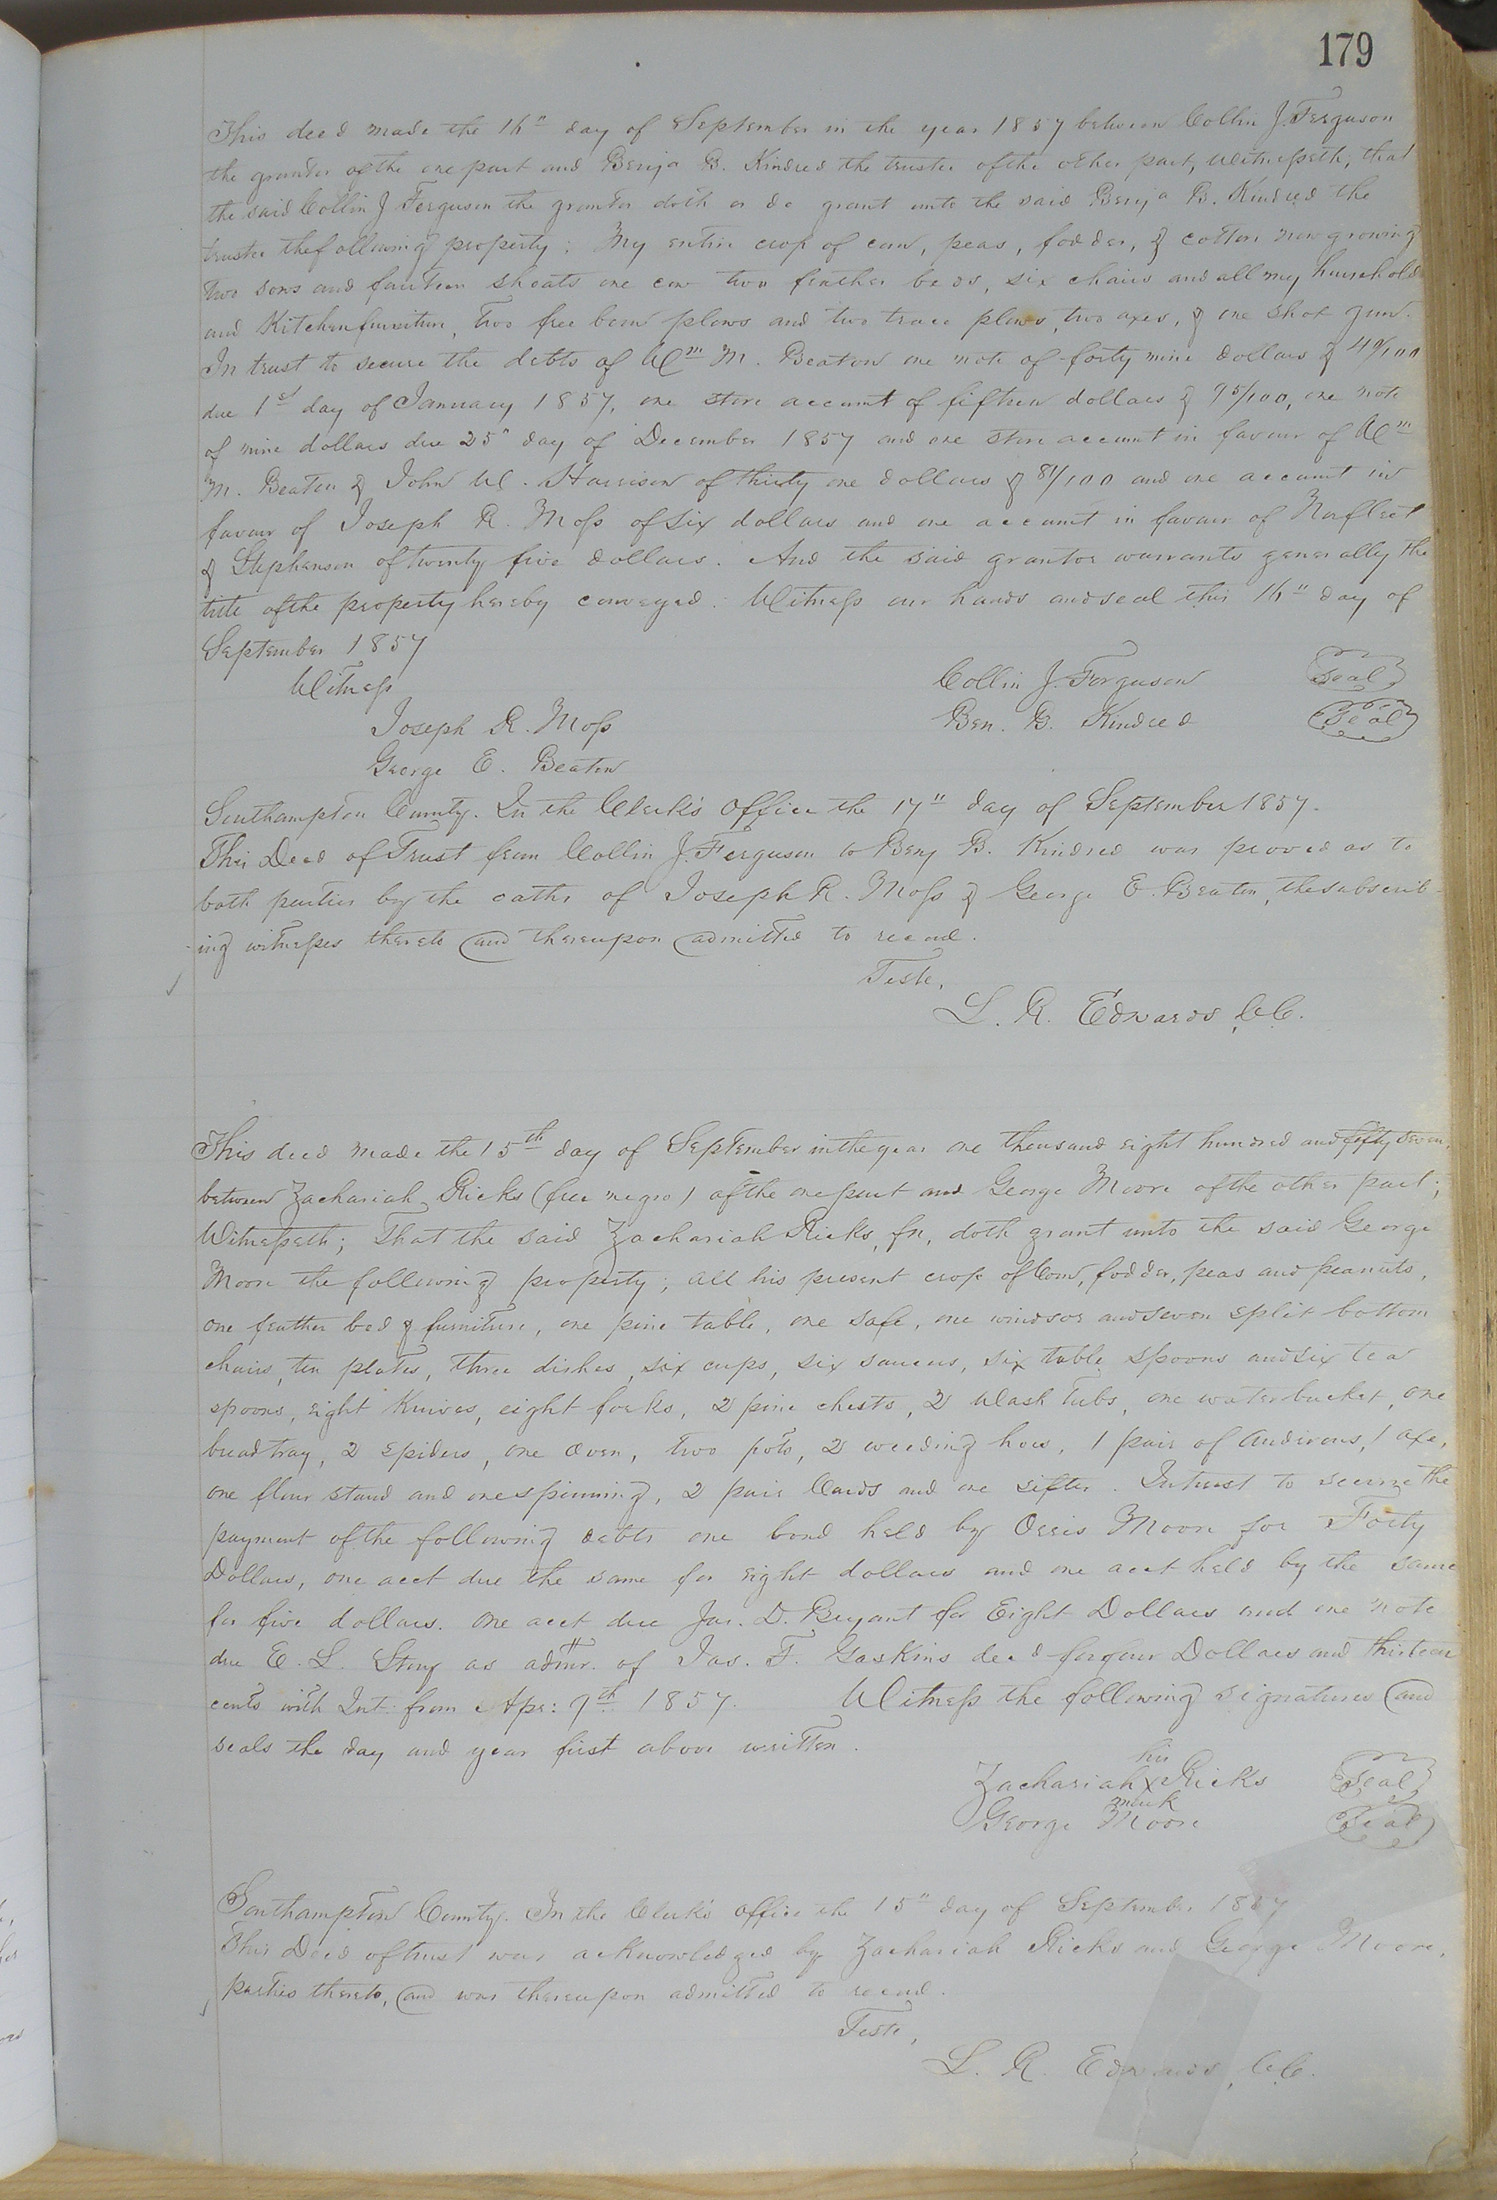 179
This deed made the 16" day of September in the year 1857 between Collin J. Ferguson
the grantor of the one part and Benja B. Kindred the trustee of the other part, Witnesseth, that
the said Collin J Ferguson the grantor doth or do grant unto the said Benja B. Kindred the
trustee the following property: My entire crop of corn, peas, fodder, & cotton now growing
two sows and fourteen shoats one cow two feather beds, six chairs and all my household
and Kitchen furniture, two free born plows and two trace plows, two axes, & one shot gun.
In trust to secure the debts of Wm M. Beaton one note of forty nine dollars & 49/100
due 1st day of January 1857, one store account of fifteen dollars & 95/100, one note
of nine dollars due 25" day of December 1857 and one store account in favour of Wm
M. Beaton & John W. Harrison of thirty one dollars & 81/100 and one account in
favour of Joseph R. Moss of six dollars and one account in favour of Norfleet
& Stephenson of twenty five dollars. And the said grantor warrants generally the
title of the property hereby conveyed. Witness our hands and seal this 16" day of
September 1857
Witness
Collin J. Ferguson Seal
Joseph R. Moss
Ben. B. Kindred Seal
George E. Beaton
Southampton County. In the Clerk's Office the 17" day of September 1857.
This Deed of Trust from Collin J. Ferguson to Benj B. Kindred was proved as to
both parties by the oaths of Joseph R. Moss & George E. Beaton, the subscrib-
ing witnesses thereto and thereupon admitted to record.
Teste,
L. R. Edwards, C.C.
This deed made the 15th day of September in the year one thousand eight hundred and fifty seven,
between Zachariah Ricks (free negro) of the one part and George Moore of the other part;
Witnesseth; That the said Zachariah Ricks, fn, doth grant unto the said George
Moore the following property; all his present crop of Corn, fodder, peas and peanuts,
one feather bed & furniture, one pine table, one safe, one windsor and seven split bottom
chairs, ten plates, three dishes, six cups, six saucers, six table spoons and six tea
spoons, eight Knives, eight forks, 2 pine chests, 2 Wash Tubs, one water bucket, one
bread tray, 2 spiders, one oven, two pots, 2 weeding hoes, 1 pair of Andirons, 1 axe,
one flour stand and one spinning, 2 pair Cards and one sifter. In trust to secure the
payment of the following debts one bond held by Orris Moore for Forty
Dollars, one acct due the same for eight dollars and one acct held by the same
for five dollars. One acct due Jas. D. Bryant for Eight Dollars and one note
due E. L. Story as admr. of Jas. F. Gaskins decd for four Dollars and thirteen
cents with Int: from Apr: 7th 1857. Witness the following signatures and
seals the day and year first above written.
his
Zachariah X Ricks Seal
mark
George Moore Seal
Southampton County. In the Clerk's office the 15" day of September 1857
This Deed of trust was acknowledged by Zachariah Ricks and George Moore,
parties thereto, and was thereupon admitted to record.
Teste,
L. R. Edwards, C.C.